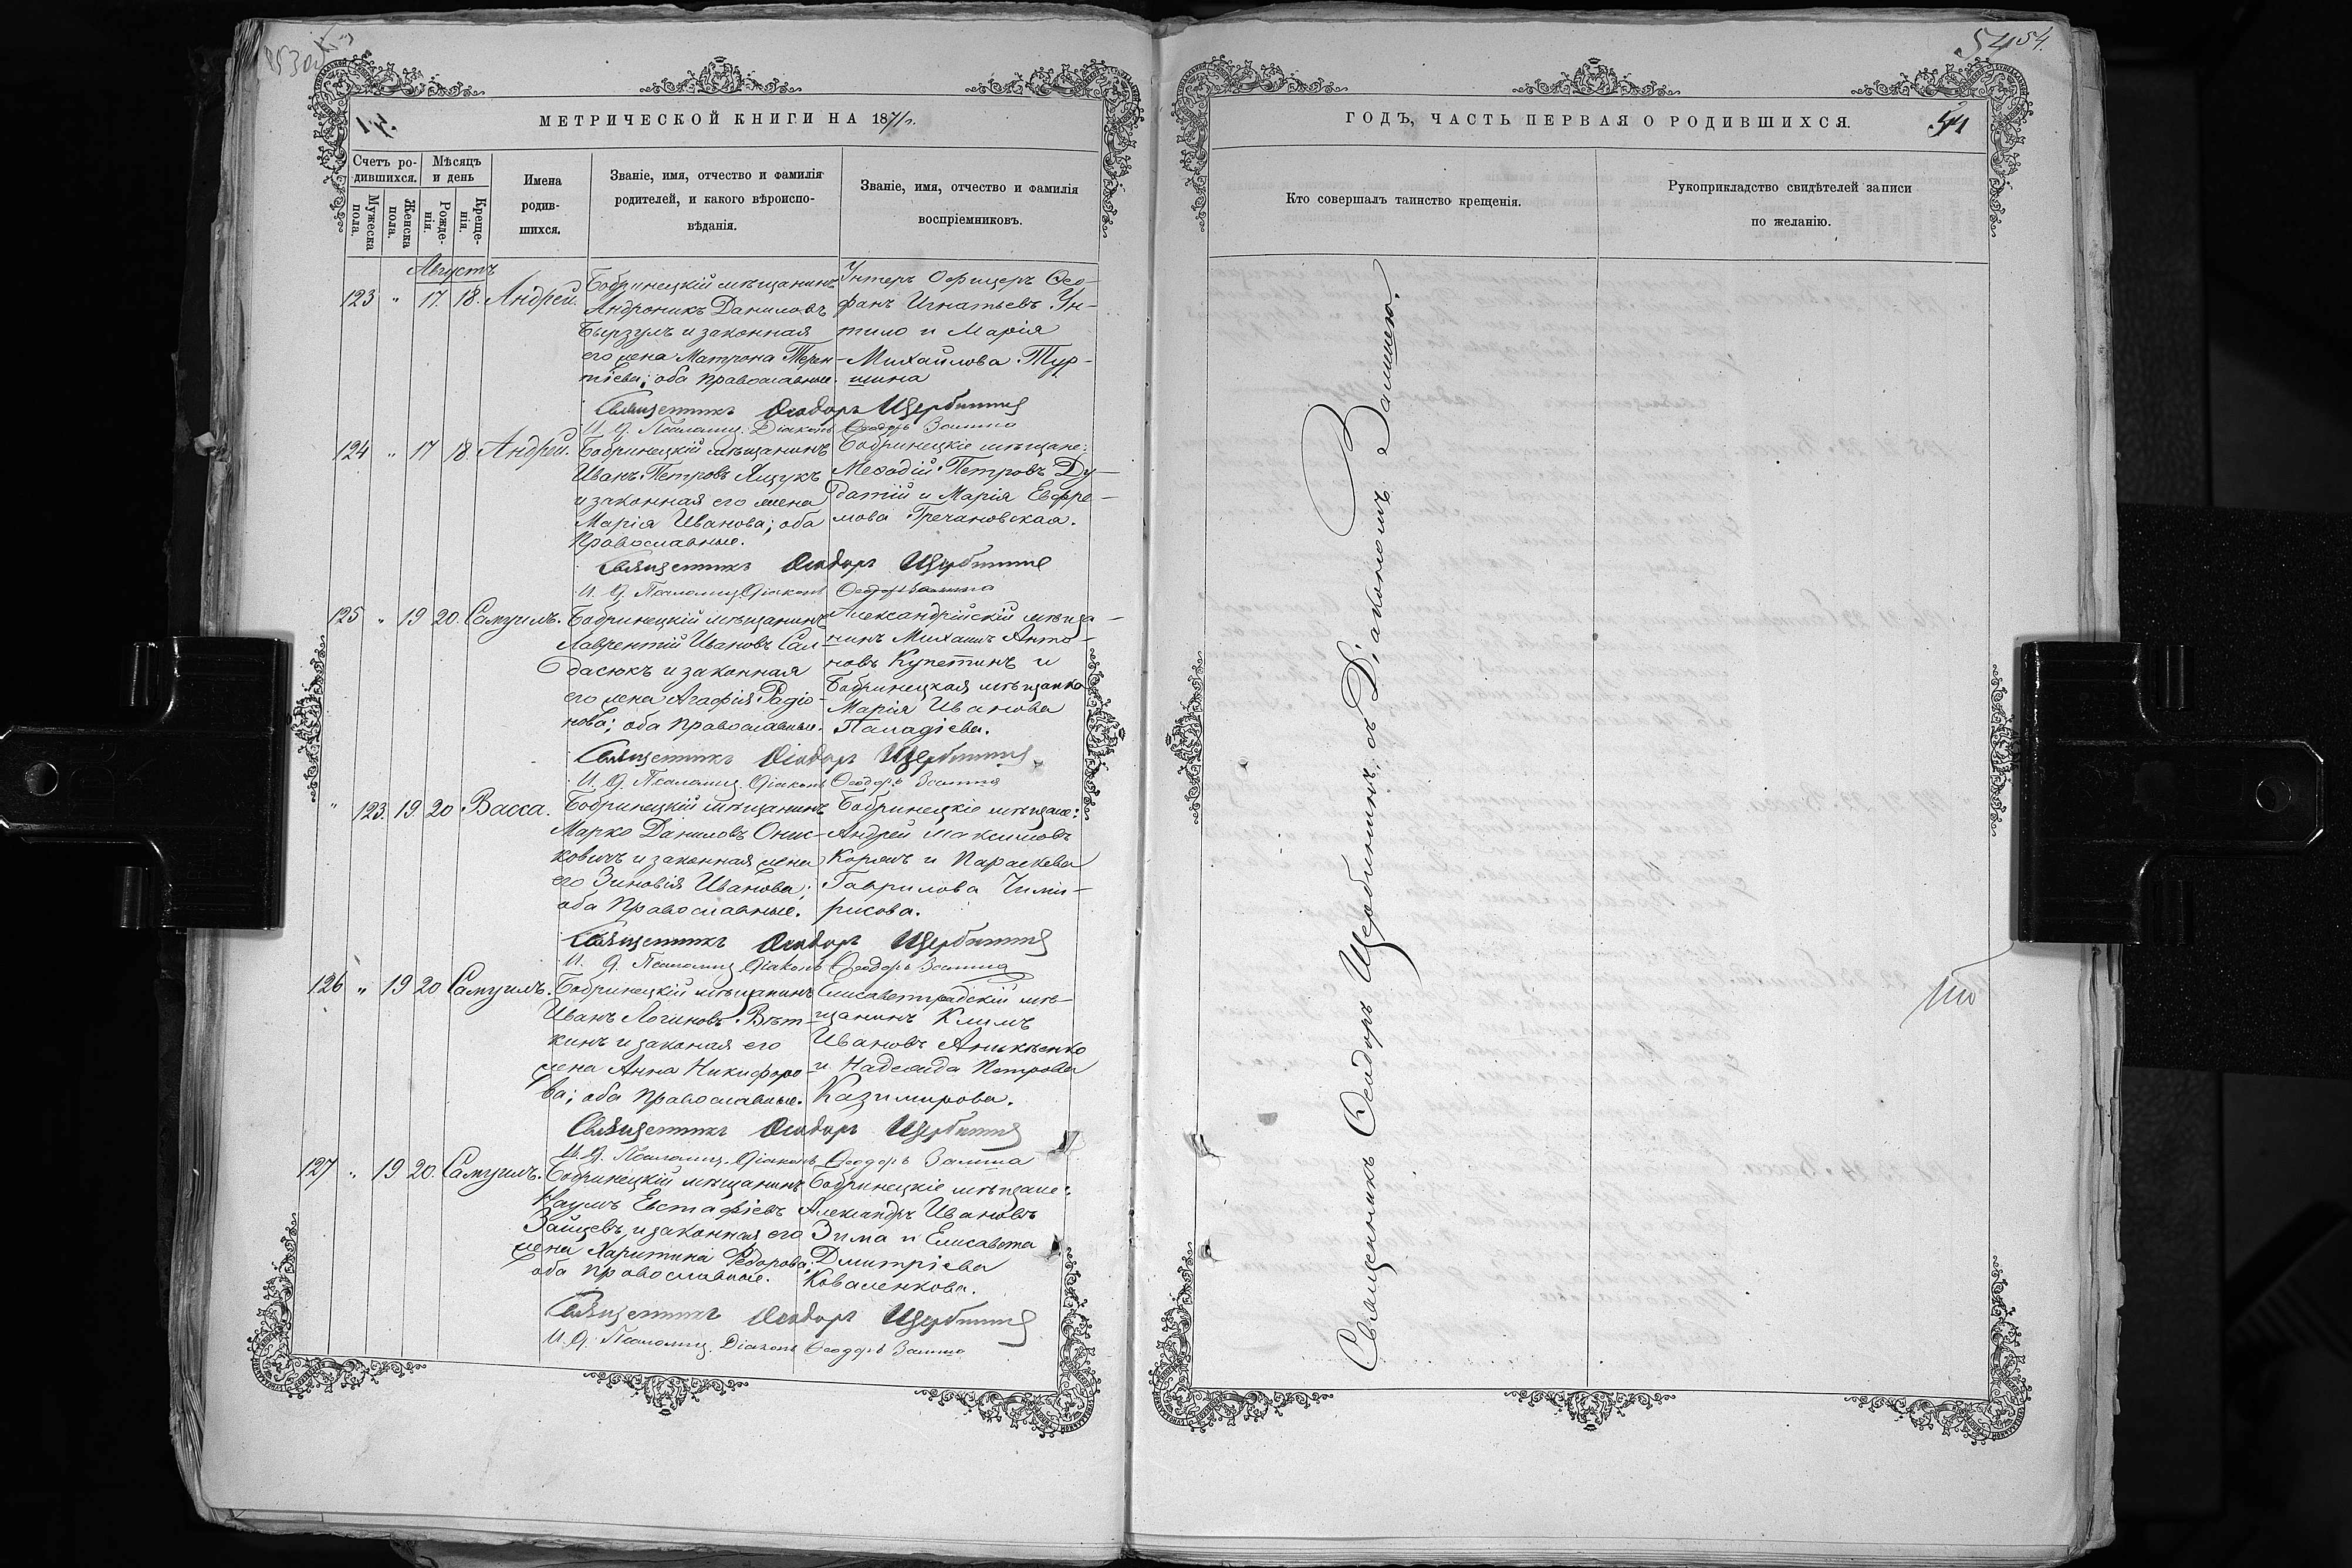 54 54.
МЕТРИЧЕСКОЙ КНИГИ НА 1871/г.
Счетъ ро-
дившихся.
Мужеска
пола.
Женска
пола.
Мѣсяцъ
и день
Рожде-
нія.
Креще-
нія.
Имена
родив-
шихся.
Званіе, имя, отчество и фамилія
родителей, и какого вѣроиспо-
вѣданія.
Званіе, имя, отчество и фамилія
воспріемниковъ.
Августъ
123 " 17. 18. Андрей.
Бобринецкій мѣщанинъ
Андроникъ Даниловъ
Бырзулъ и законная
его жена Матрона Терен-
тіева; оба православные.
Унтеръ Офицеръ Ѳео-
фанъ Игнатьевъ Ун-
тило и Марія
Михайлова Тур-
шина
Священникъ Ѳеодоръ Щербининъ
И. Д. Псаломщ. Діаконъ Ѳеодоръ
124 " 17 18. Андрей.
Бобринецкій мѣщанинъ
Иванъ Петровъ Ящукъ
и законная его жена
Марія Иванова; оба
Православные.
Бобринецкіе мѣщане:
Меѳодій Петровъ Ду-
датій и Марія Евфре-
мова Гречановская.
Священникъ Ѳеодоръ Щербининъ
И. Д. Псаломщ. Діаконъ Ѳеодоръ
125 " 19 20. Самуилъ.
Бобринецкій мѣщанинъ
Лаврентій Ивановъ Сал-
дасюкъ и законная
его жена Агафія Радіо-
нова; оба Православные.
Александрійскій мѣща-
нинъ Михаилъ Анто-
новъ Купетинъ и
Бобринецкая мѣщанка
Марія Иванова
Паладіева.
Священникъ Ѳеодоръ Щербининъ
И. Д. Псаломщ. Діаконъ Ѳеодоръ
" 123. 19. 20 Васса.
Бобринецкій мѣщанинъ
Марко Даниловъ Онис-
ковичъ и законная жена
его Зиновія Иванова;
оба Православные.
Бобринецкіе мѣщане:
Андрей Максимовъ
и Параскева
Гаврилова Чими-
рисова.
Священникъ Ѳеодоръ Щербининъ
И. Д. Псаломщ. Діаконъ Ѳеодоръ
126 " 19 20 Самуилъ.
Бобринецкій мѣщанинъ
Иванъ Логиновъ Вѣт-
кинъ и законая его
жена Анна Никифоро-
ва; оба православные.
Елисаветградскій мѣ-
щанинъ Климъ
Ивановъ
и Надежда Петрова
Казимирова.
Священникъ Ѳеодоръ Щербининъ
И. Д. Псаломщ. Діаконъ Ѳеодоръ
127 " 19 20. Самуилъ.
Бобринецкій мѣщанинъ
Наумъ Евстафіевъ
Зайцевъ, и законная его
жена Харитина Ѳедорова;
оба православные.
Бобринецкіе мѣщане:
Александръ Ивановъ
Зима и Елисавета
Дмитріева
Коваленкова.
Священникъ Ѳеодоръ Щербининъ
И. Д. Псаломщ. Діаконъ Ѳеодоръ
ГОДЪ, ЧАСТЬ ПЕРВАЯ О РОДИВШИХСЯ.
Кто совершалъ таинство крещенія.
Рукоприкладство свидѣтелей записи
по желанію.
Священникъ Ѳеодоръ Щербининъ, съ Діакономъ